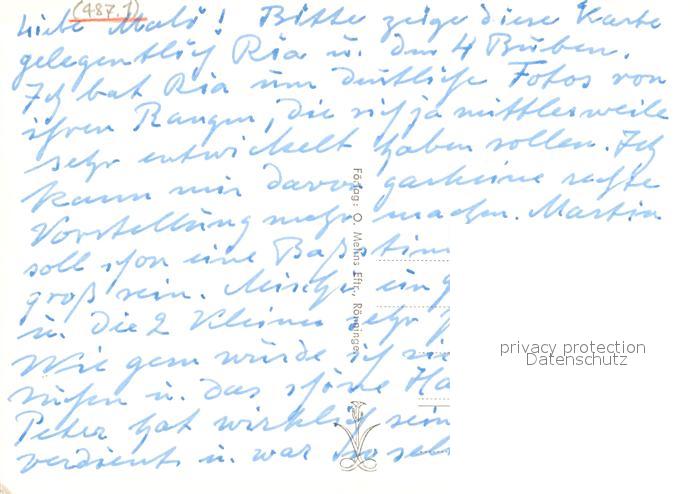 (487.1)
Liebe Mali! Bitte zeige diese Karte
gelegentlich Ria u. den 4 Buben.
Ich bat Ria um deutliche Fotos von
ihren Rangen, die sich ja mittlerweile
sehr entwickelt haben sollen. Ich
kann mir davon garkeine rechte
Vorstellung mehr machen. Martin
soll schon eine Baßstim
groß sein. ein g
u. die 2 Kleinen sehr
Wie gern würde ich
u. das schöne Ha
Peter hat wirklich sein
verdient u. war so seh
Förlag: O. Mehns Eftr., Rönninge.
privacy protection
Datenschutz